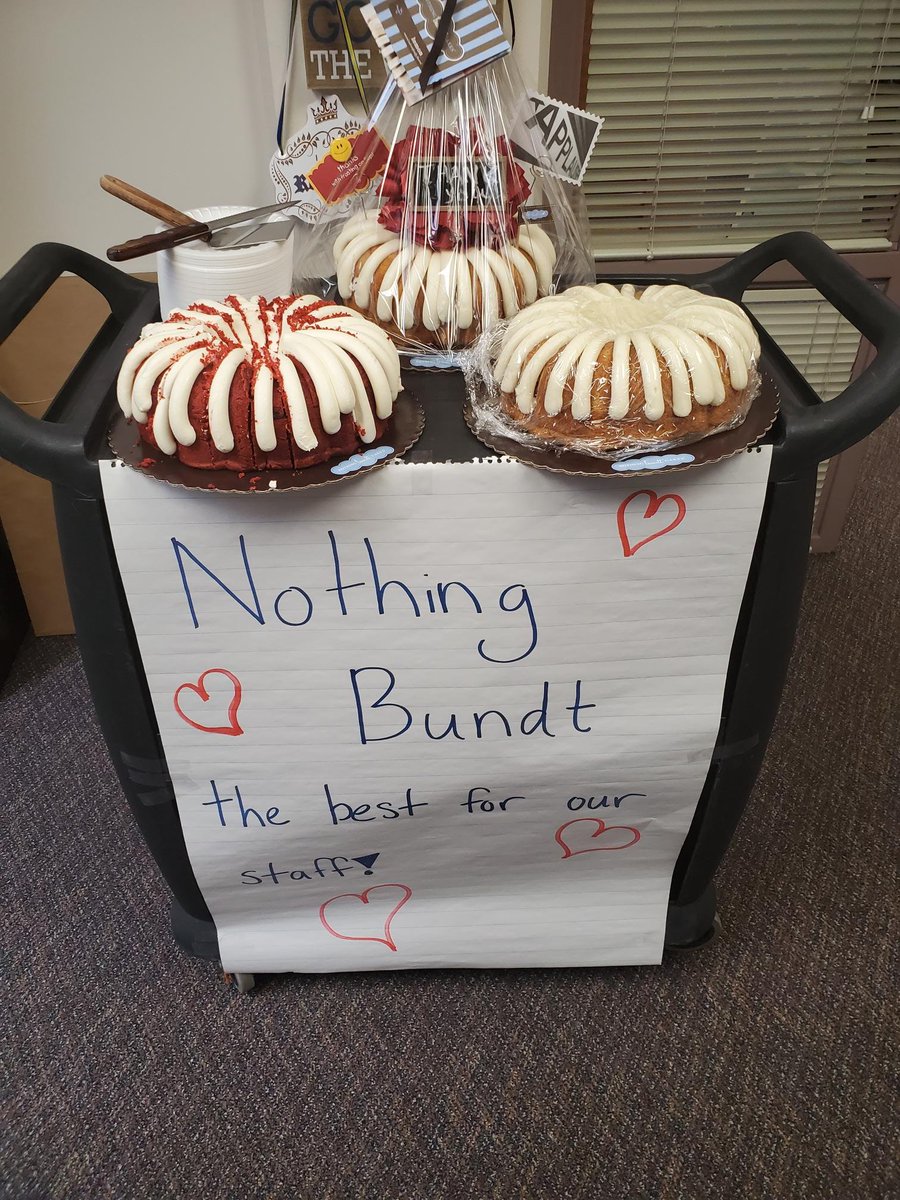 GO
THE
APPL
thanks
Nothing
Bundt
the best for our
staff!